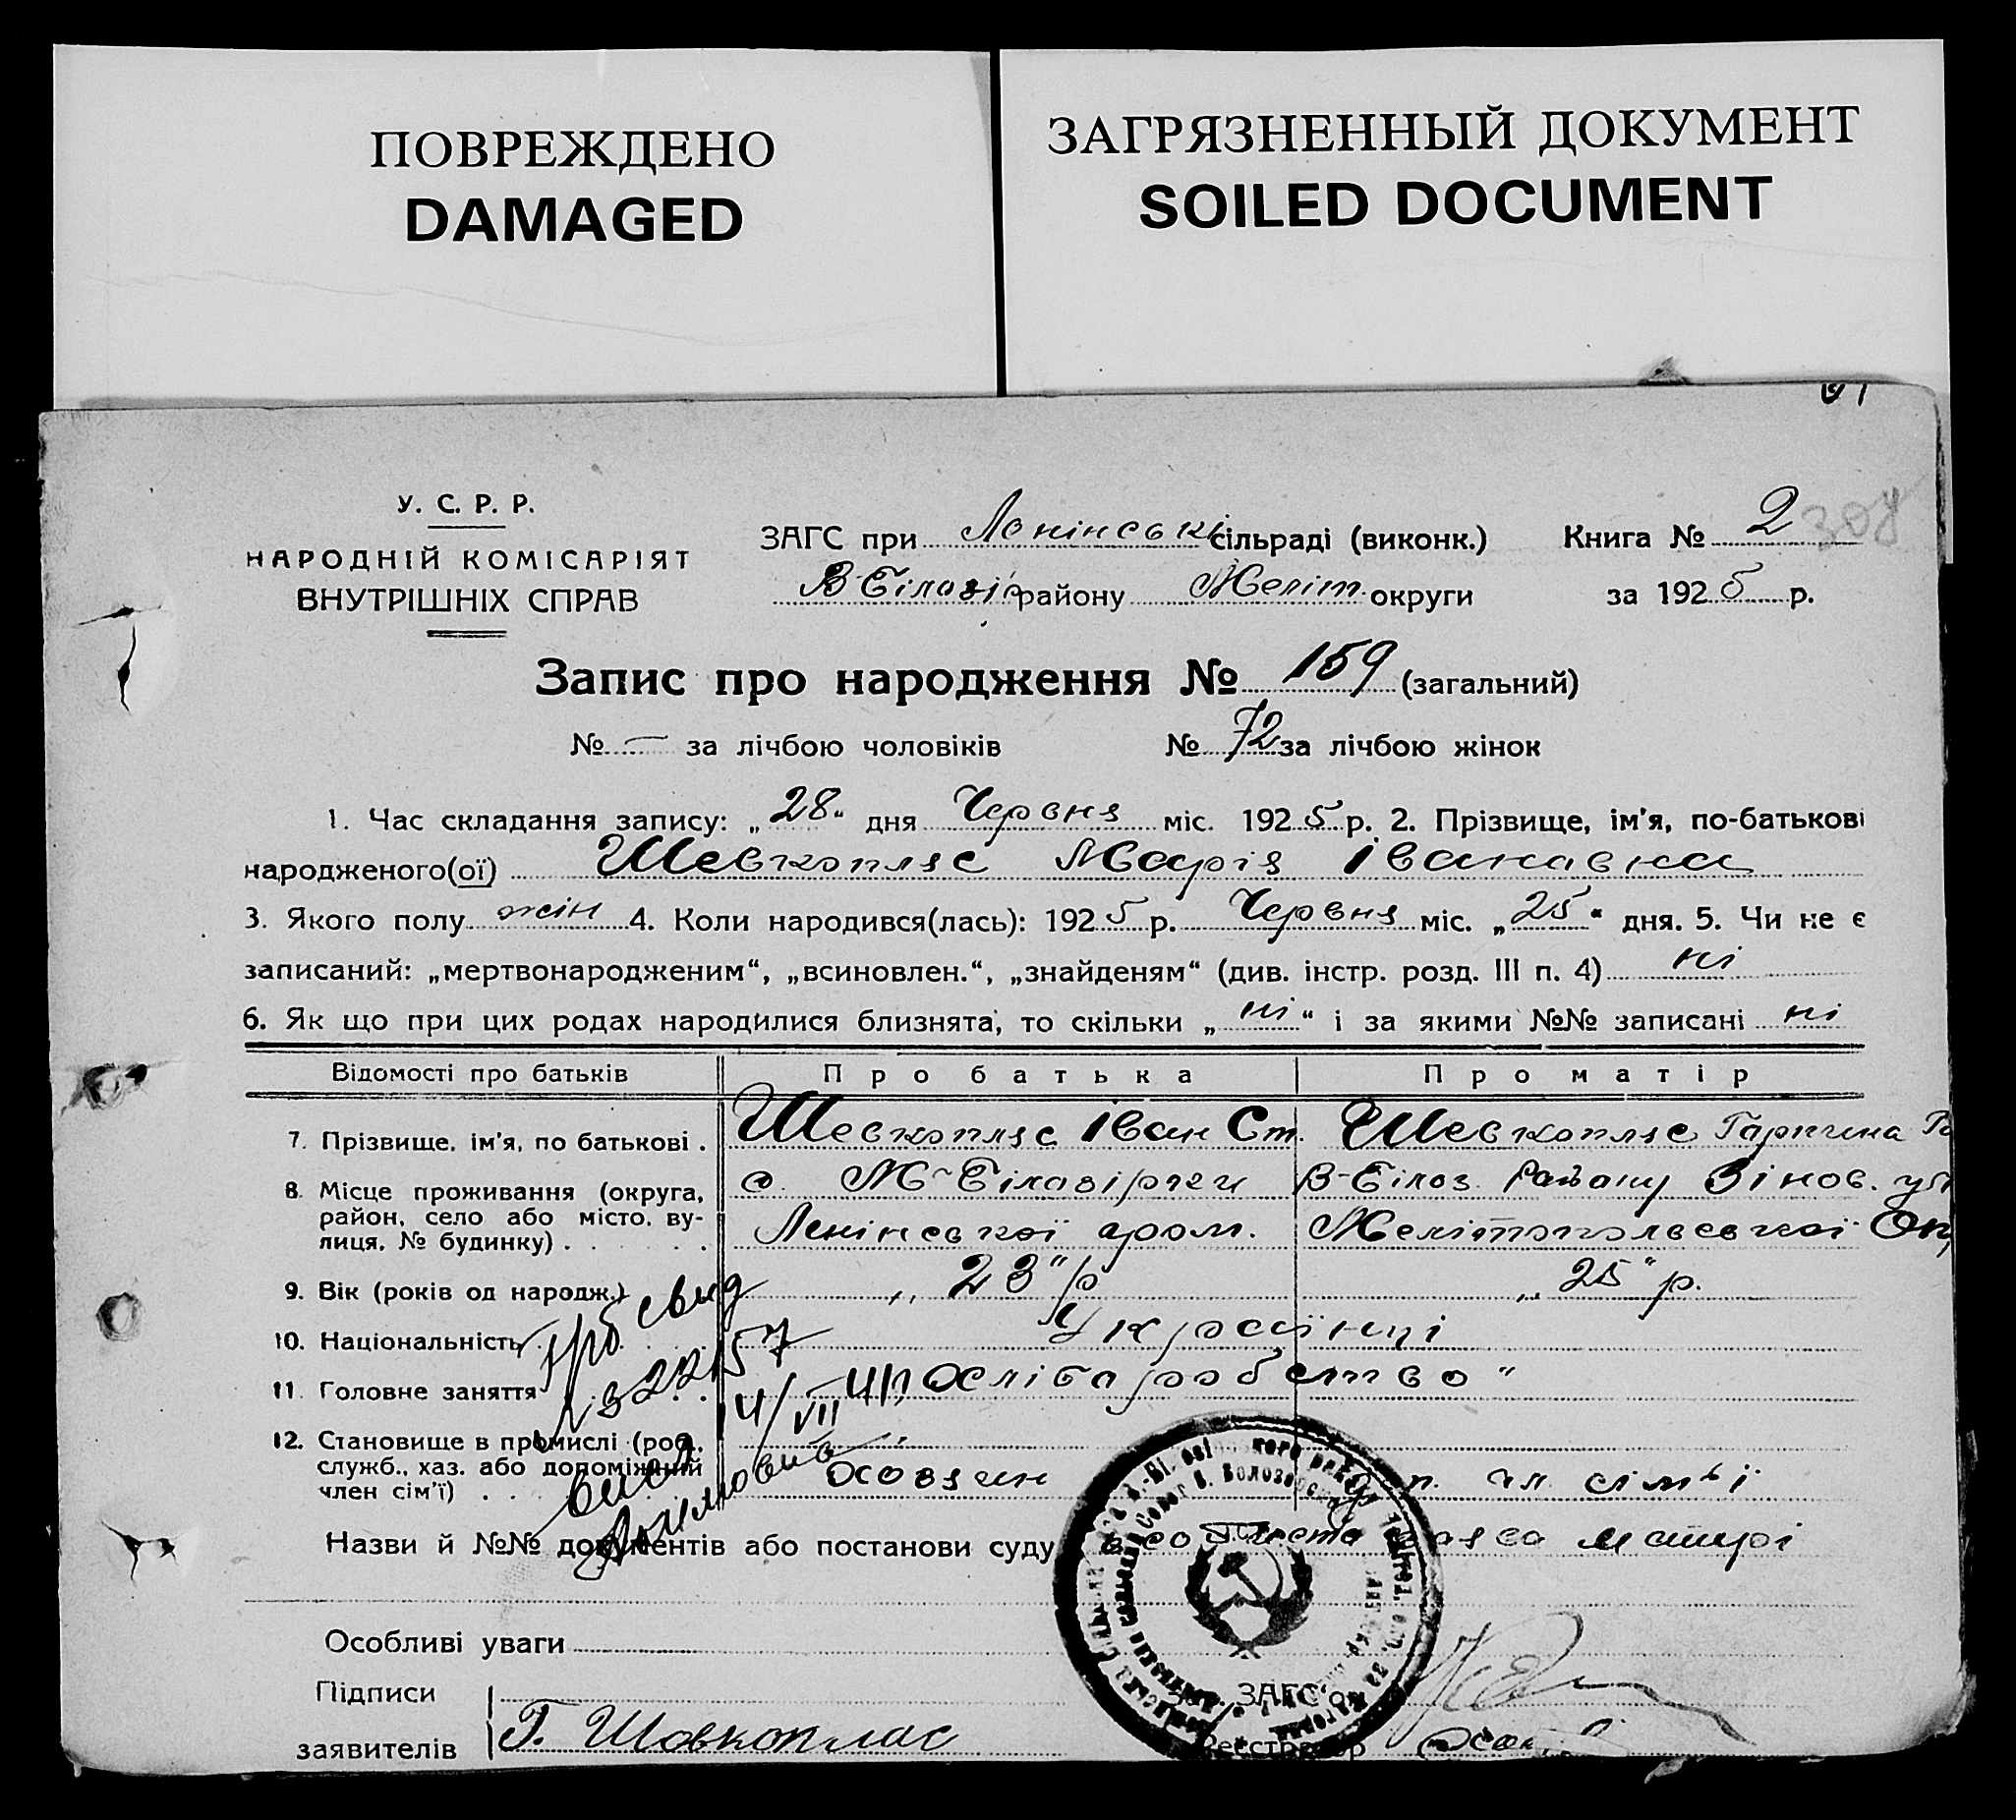 ПОВРЕЖДЕНО
DAMAGED
ЗАГРЯЗНЕННЫЙ ДОКУМЕНТ
SOILED DOCUMENT
У. С. Р. Р.
НАРОДНІЙ КОМІСАРІЯТ
ВНУТРІШНІХ СПРАВ
ЗАГС при Ленінській сільраді (виконк.) Книга № 2 308
В-Білозір району Меліт. округи за 1925 р.
Запис про народження № 159 (загальний)
№ — за лічбою чоловіків № 72 за лічбою жінок
1. Час складання запису: „28" дня Червня міс. 1925 р. 2. Прізвище, ім'я, по-батькові
народженого(ої) Шевкопляс Марія Іванавна
3. Якого полу жін 4. Коли народився(лась): 1925 р. Червня міс. „25" дня. 5. Чи не є
записаний: „мертвонародженим", „всиновлен.", „знайденям" (див. інстр. розд. III п. 4) ні
6. Як що при цих родах народилися близнята, то скільки „ні" і за якими №№ записані ні
Відомості про батьків Про батька Про матір
7. Прізвище, ім'я, по батькові . Шевкопляс Іван Ст. Шевкопляс Гарпина
8. Місце проживання (округа, с. М-Білозірки В-Білоз. Району Зінов.
район, село або місто, ву- Ленінської гром. Мелітопольської Ок
лиця, № будинку) .
9. Вік (років од народж.) „23" р „25" р.
10. Національність Українці
11. Головне заняття „Хліборобство"
12. Становище в промислі (роб.,
служб., хаз. або допоміжний хозяин п. чл. сім'ї
член сім'ї) .
14/VII
Назви й №№ документів або постанови суду матрі
Особливі уваги
Підписи Зав. ЗАГС'ом
заявителів Г. Шовкоплас Реєстратор